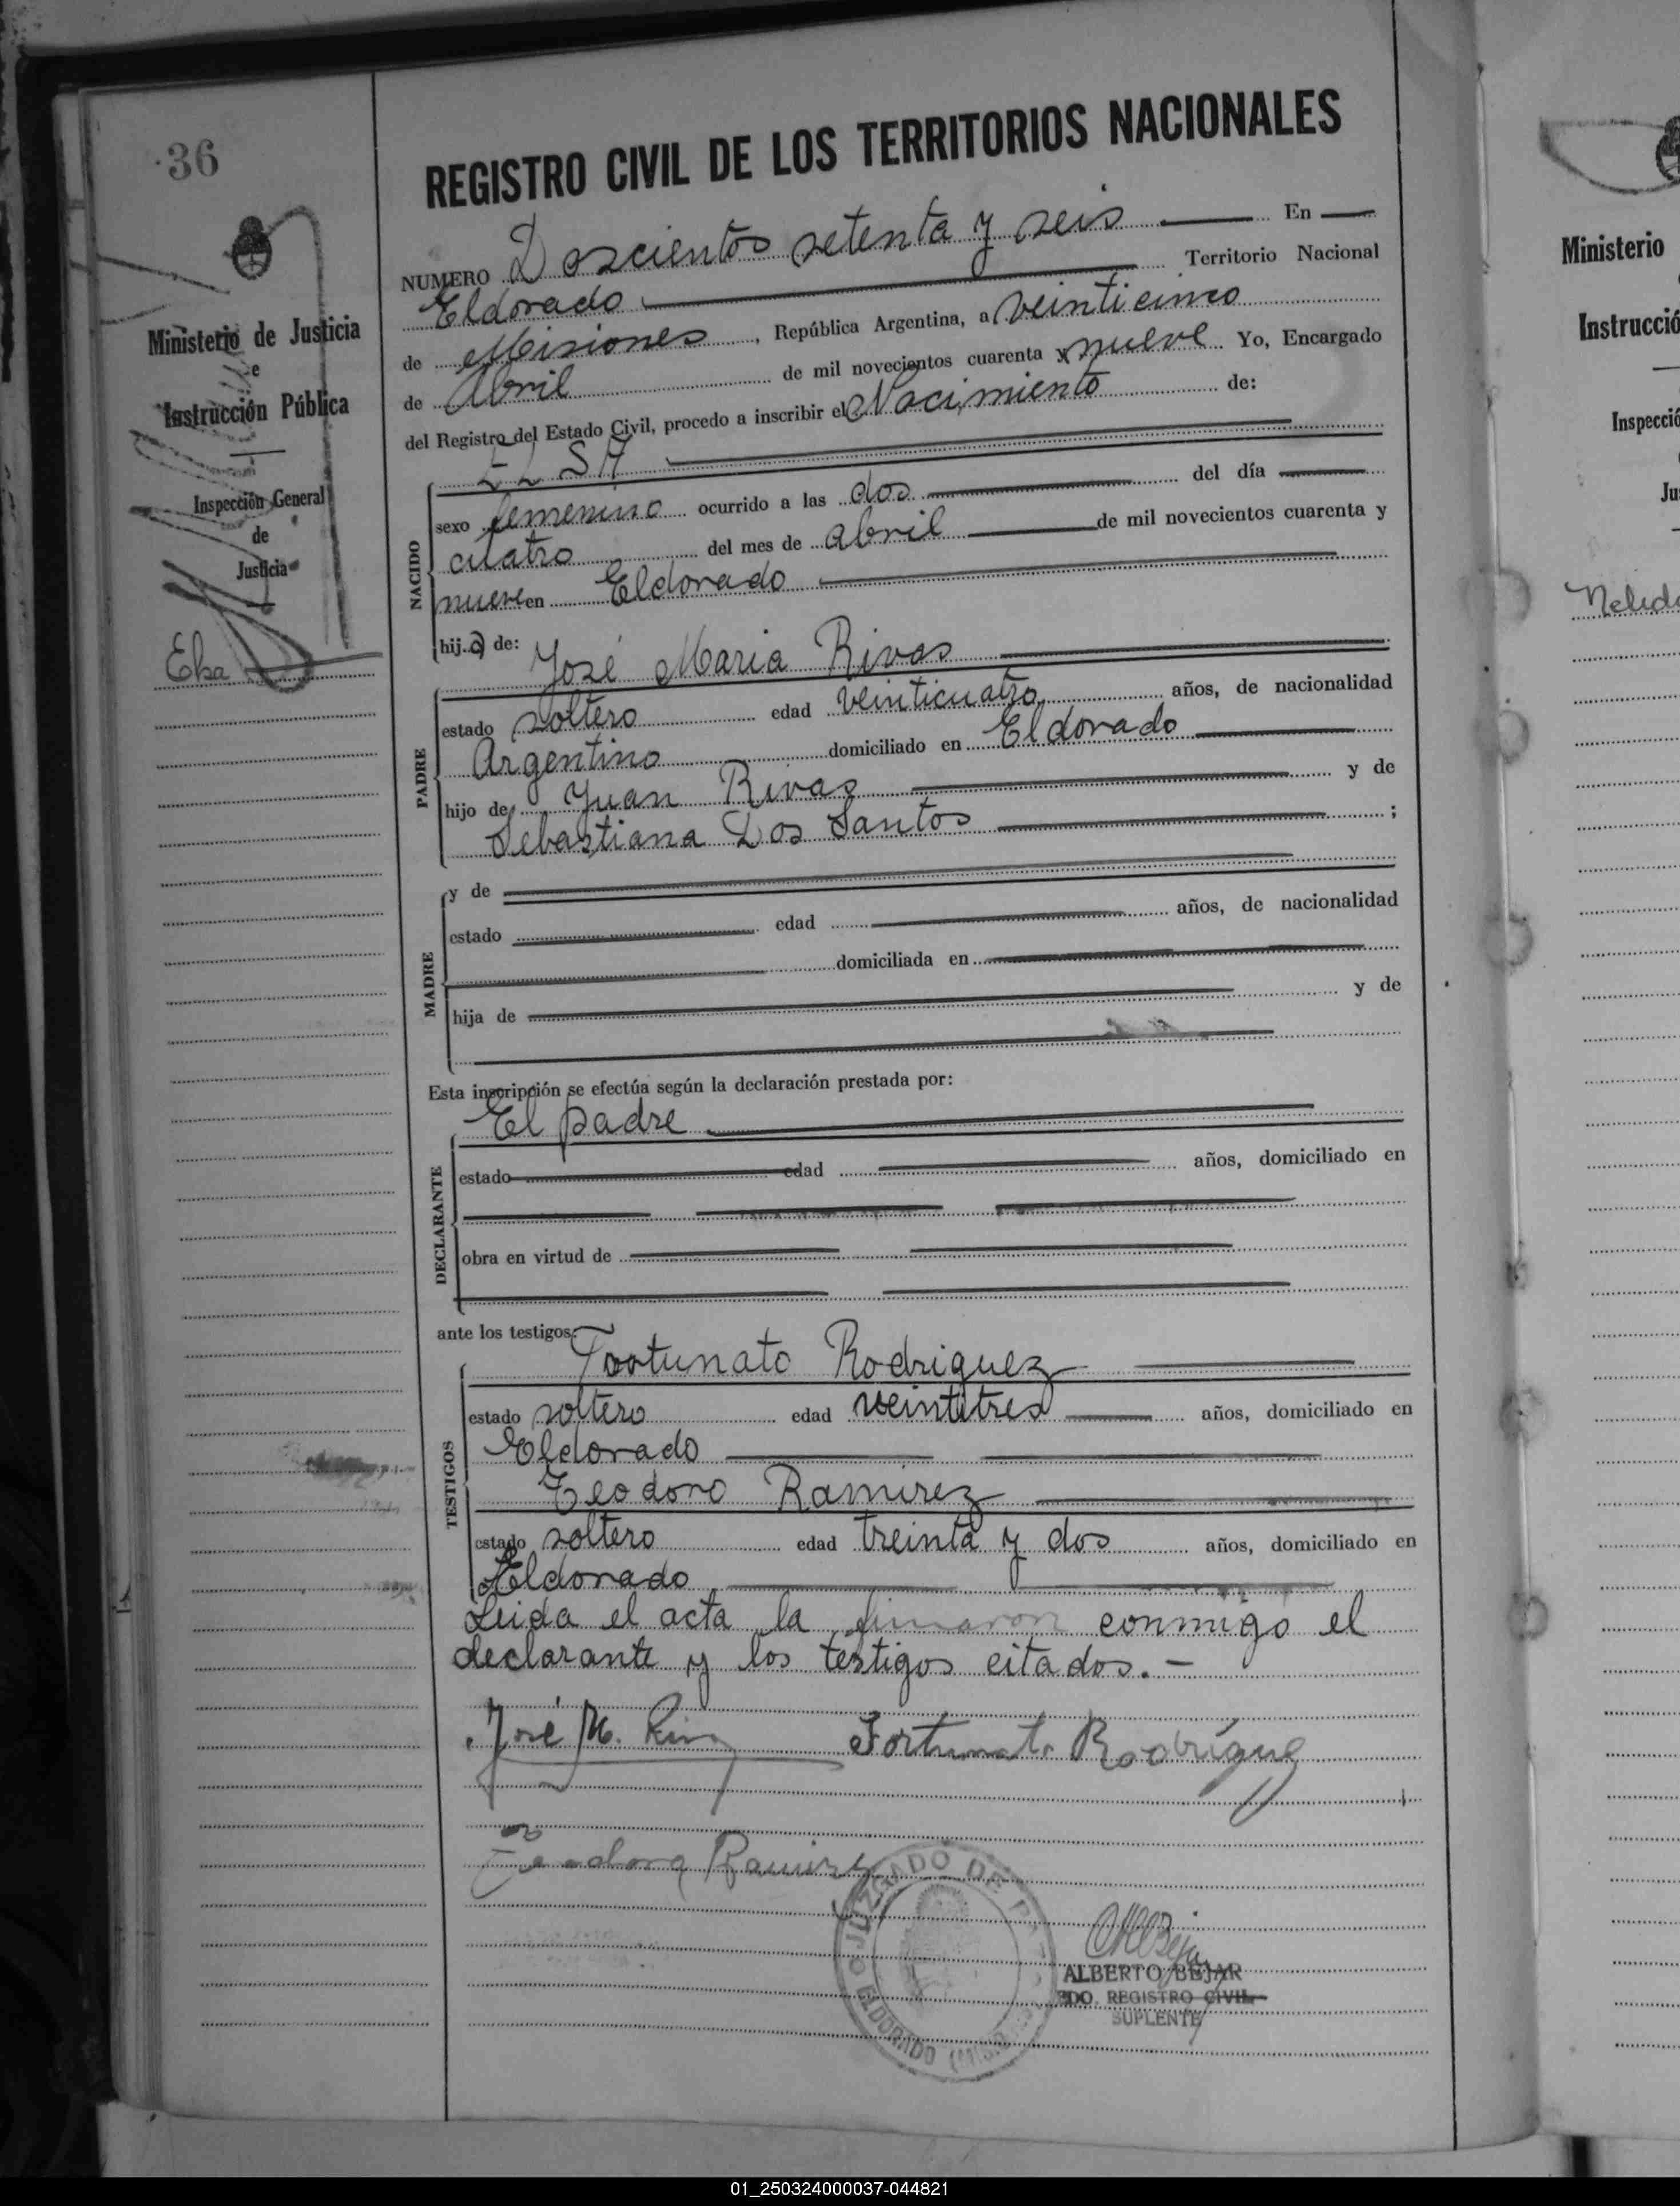 36
REGISTRO CIVIL DE LOS TERRITORIOS NACIONALES
Ministerio de Justicia
e
Instrucción Pública
Inspección General
de
Justicia
Elsa
NUMERO Doscientos setenta y seis En
Eldorado Territorio Nacional
de Misiones, República Argentina, a veinticinco
de Abril de mil novecientos cuarenta y nueve Yo, Encargado
del Registro del Estado Civil, procedo a inscribir el Nacimiento de:
ELSA
NACIDO
sexo femenino ocurrido a las dos del día
cuatro del mes de abril de mil novecientos cuarenta y
nueve en Eldorado
hija de: José Maria Rivas
PADRE
estado soltero edad veinticuatro años, de nacionalidad
Argentino domiciliado en Eldorado
hijo de Juan Rivas y de
Sebastiana Dos Santos ;
MADRE
y de
estado edad años, de nacionalidad
domiciliada en
hija de y de
Esta inscripción se efectúa según la declaración prestada por:
El padre
DECLARANTE
estado edad años, domiciliado en
obra en virtud de
ante los testigos: Fortunato Rodriguez
TESTIGOS
estado soltero edad veintitres años, domiciliado en
Eldorado
Teodoro Ramirez
estado soltero edad treinta y dos años, domiciliado en
Eldorado
Leida el acta la firmaron conmigo el
declarante y los testigos citados.-
José M. Rivas Fortunato Rodríguez
Teodoro Ramirez
JUZGADO DE P
ELDORADO (MISIONES)
ALBERTO BEJAR
DO. REGISTRO CIVIL
SUPLENTE
Ministerio
Instrucció
Inspecció
Ju
Nelida
01_250324000037-044821